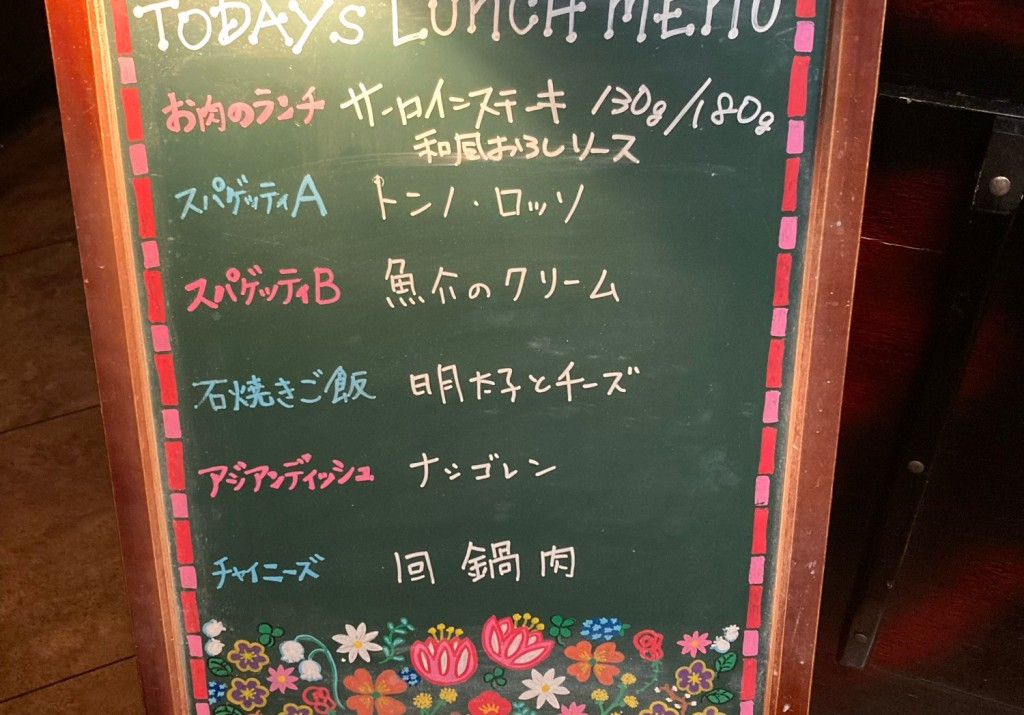 TODAYs LUNCH MENU
お肉のランチ サーロインステーキ 130g/180g
和風おろしソース
スパゲッティA トンノ・ロッソ
スパゲッティB 魚介のクリーム
石焼きご飯 明太子とチーズ
アジアンディッシュ ナシゴレン
チャイニーズ 回鍋肉